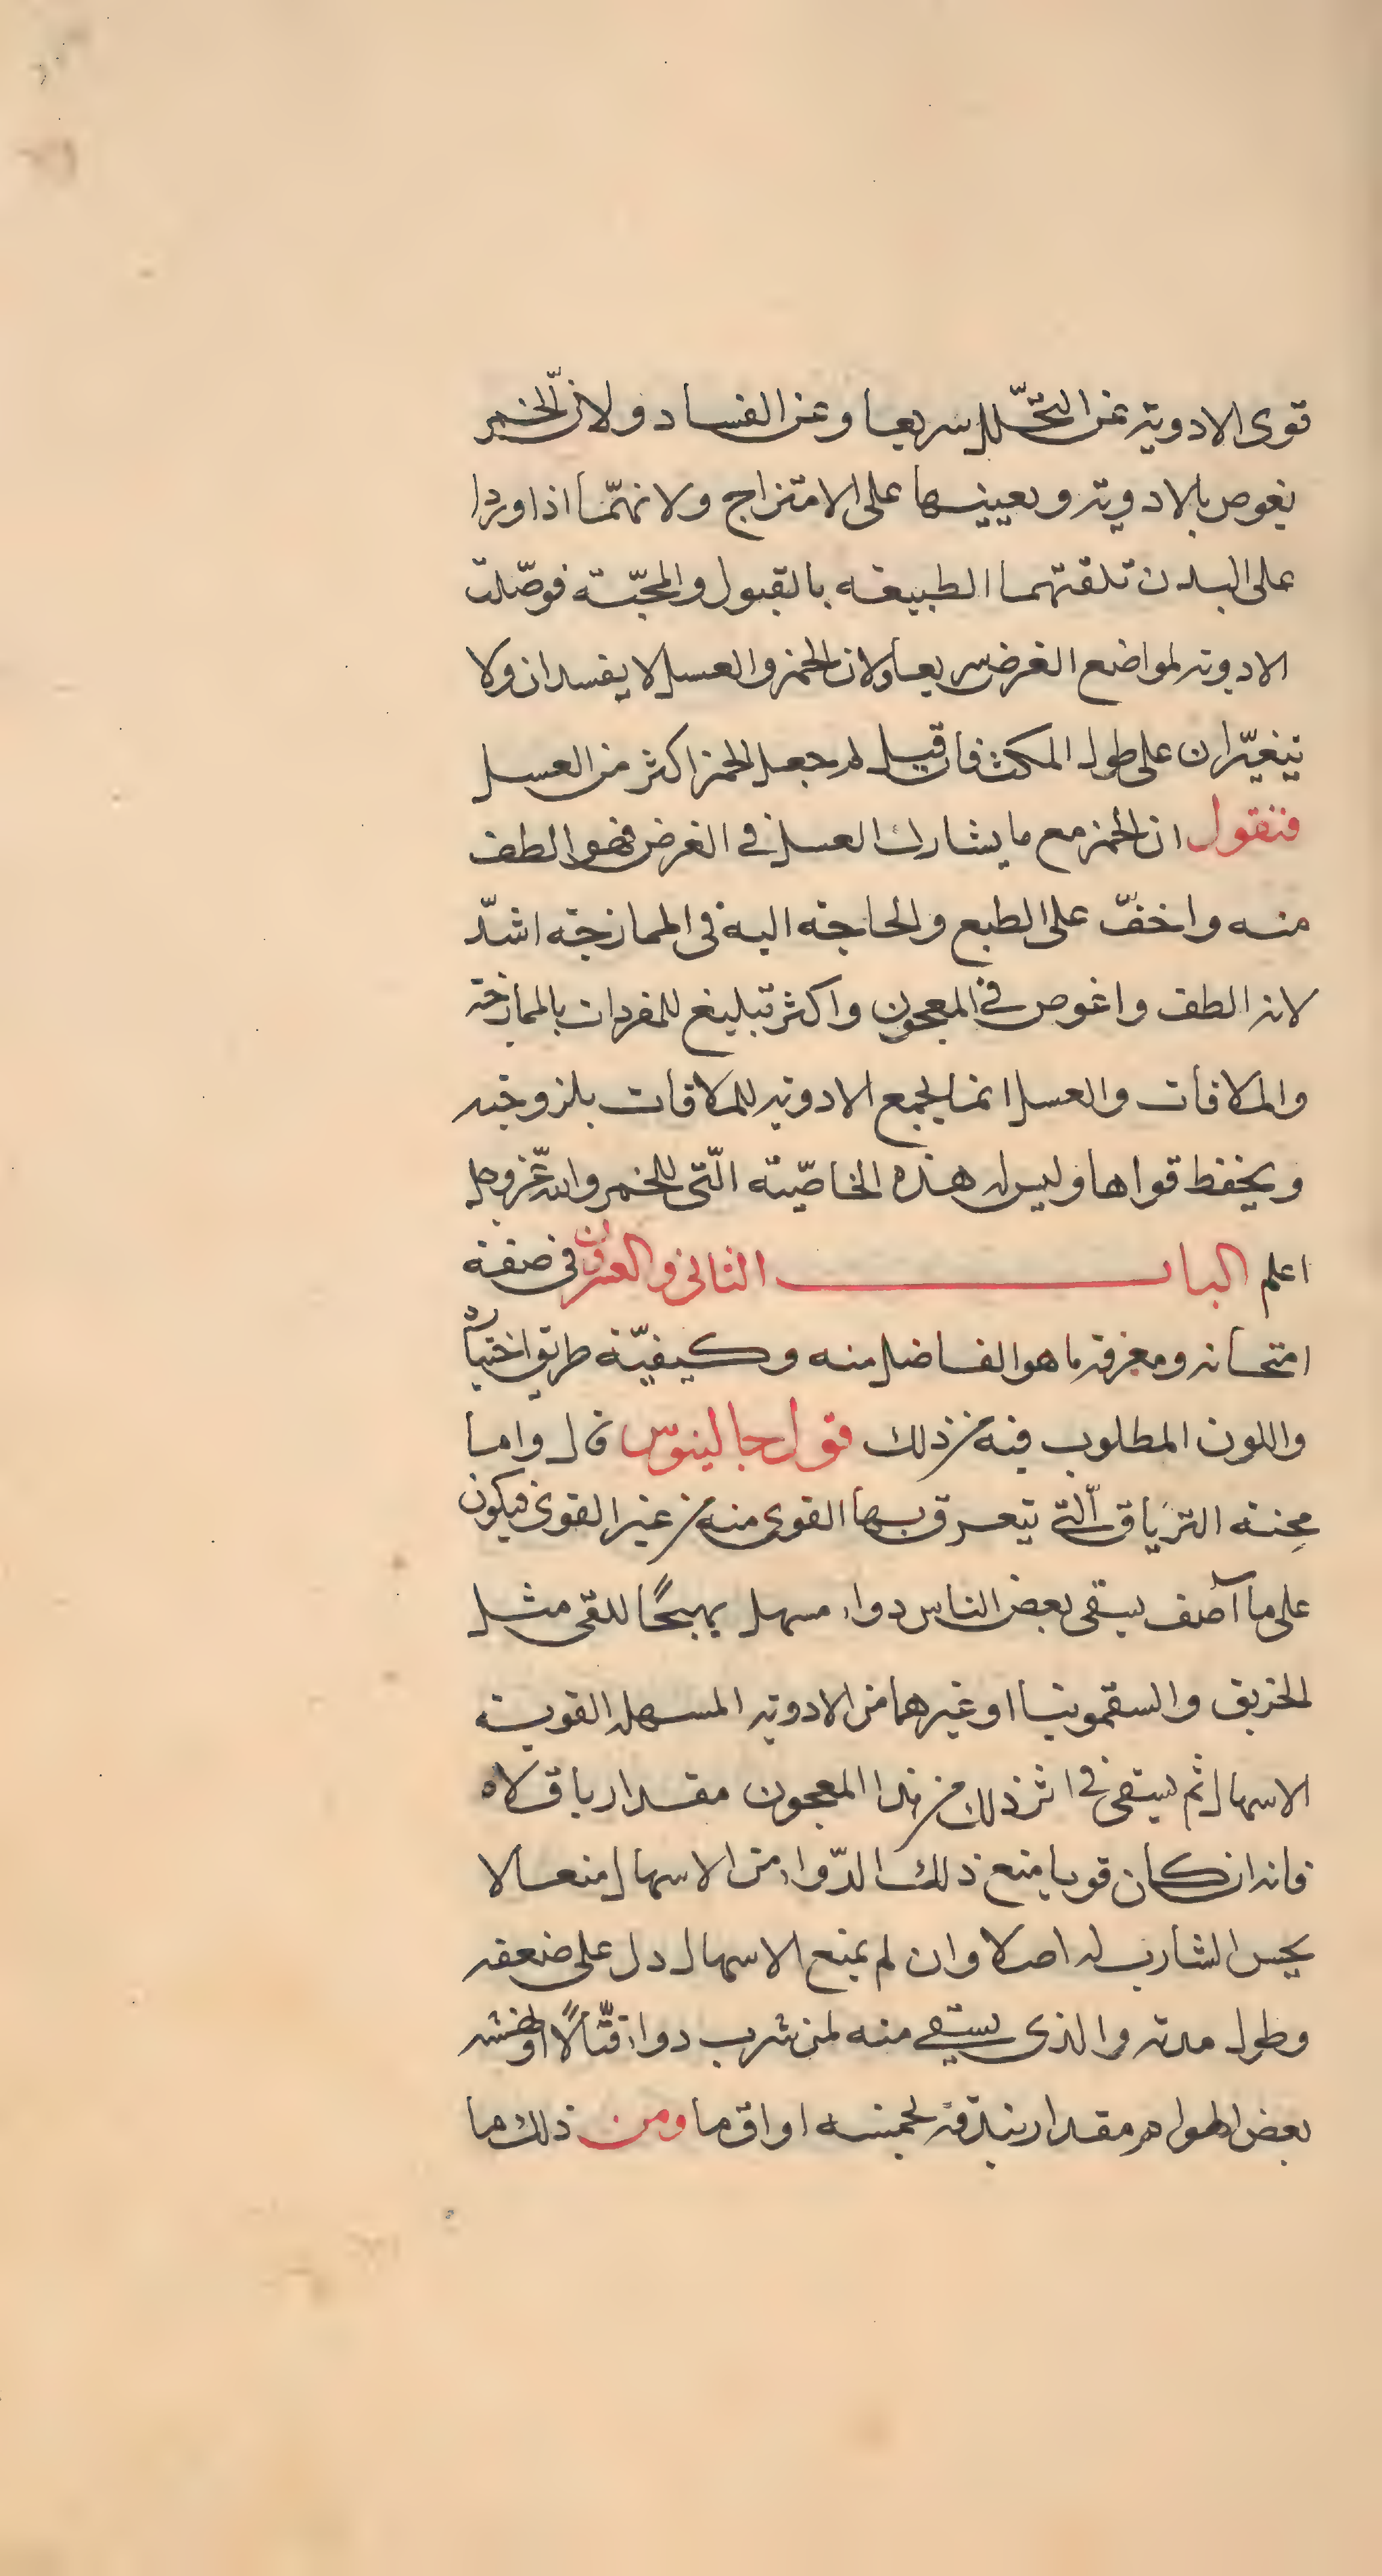 قوى الادوية عن التحلّل سريعا وعن الفساد ولانّ الخمر
يغوص بالادوية ويعينها على الامتزاج ولانهمّا اذا وردا
على البدن تلقتهما الطبيعة بالقبول والمحبّة فوصّلت
الادوية لمواضع الغرض سريعا ولان الخمر والعسل لا يفسدان ولا
يتغيّران على طول المكث فان قيل لم جعل الخمر اكثر من العسل
فنقول ان الخمر مع ما يشارك العسل في الغرض فهو الطف
منه واخفّ على الطبع والحاجة اليه فى الممازجة اشدّ
لانه الطف واغوص في المعجون واكثر تبليغ للمفردات بالممازجة
والملاقات والعسل انما يجمع الادوية للملاقات بلزوجته
ويحفظ قواها وليس له هذه الخاصّية الّتى للخمر والله عّز وجل
اعلم الباب الثانى والعشرون فى صفة
امتحانه ومعرفة ما هو الفاضل منه وكيفيّة طريق اختياره
واللون المطلوب فيه من ذلك قول جالينوس قال واما
مِحنة الترياق الّتي يتعرق بها القوى منه من غير القوى فيكون
على ما آصف يسقى بعض الناس دواء مسهل يهيجًا للقى مثل
الخربق والسقمونيا او غيرهما من الادوية المسهله القوية
الاسهال ثم يسقى في اثر ذلك من هذا المعجون مقدار باقلاه
فانه ان كان قويا منع ذلك الدّواء من الاسهال منعا لا
يحس الشارب له اصلا وان لم يمنع الاسهال دل على ضعفه
وطول مدته والذى يسّقي منه لمن شرب دواء قتّالًا او نهشه
بعض الهوام مقدار بندقة لخمسة اواق ما ومن ذلك ما